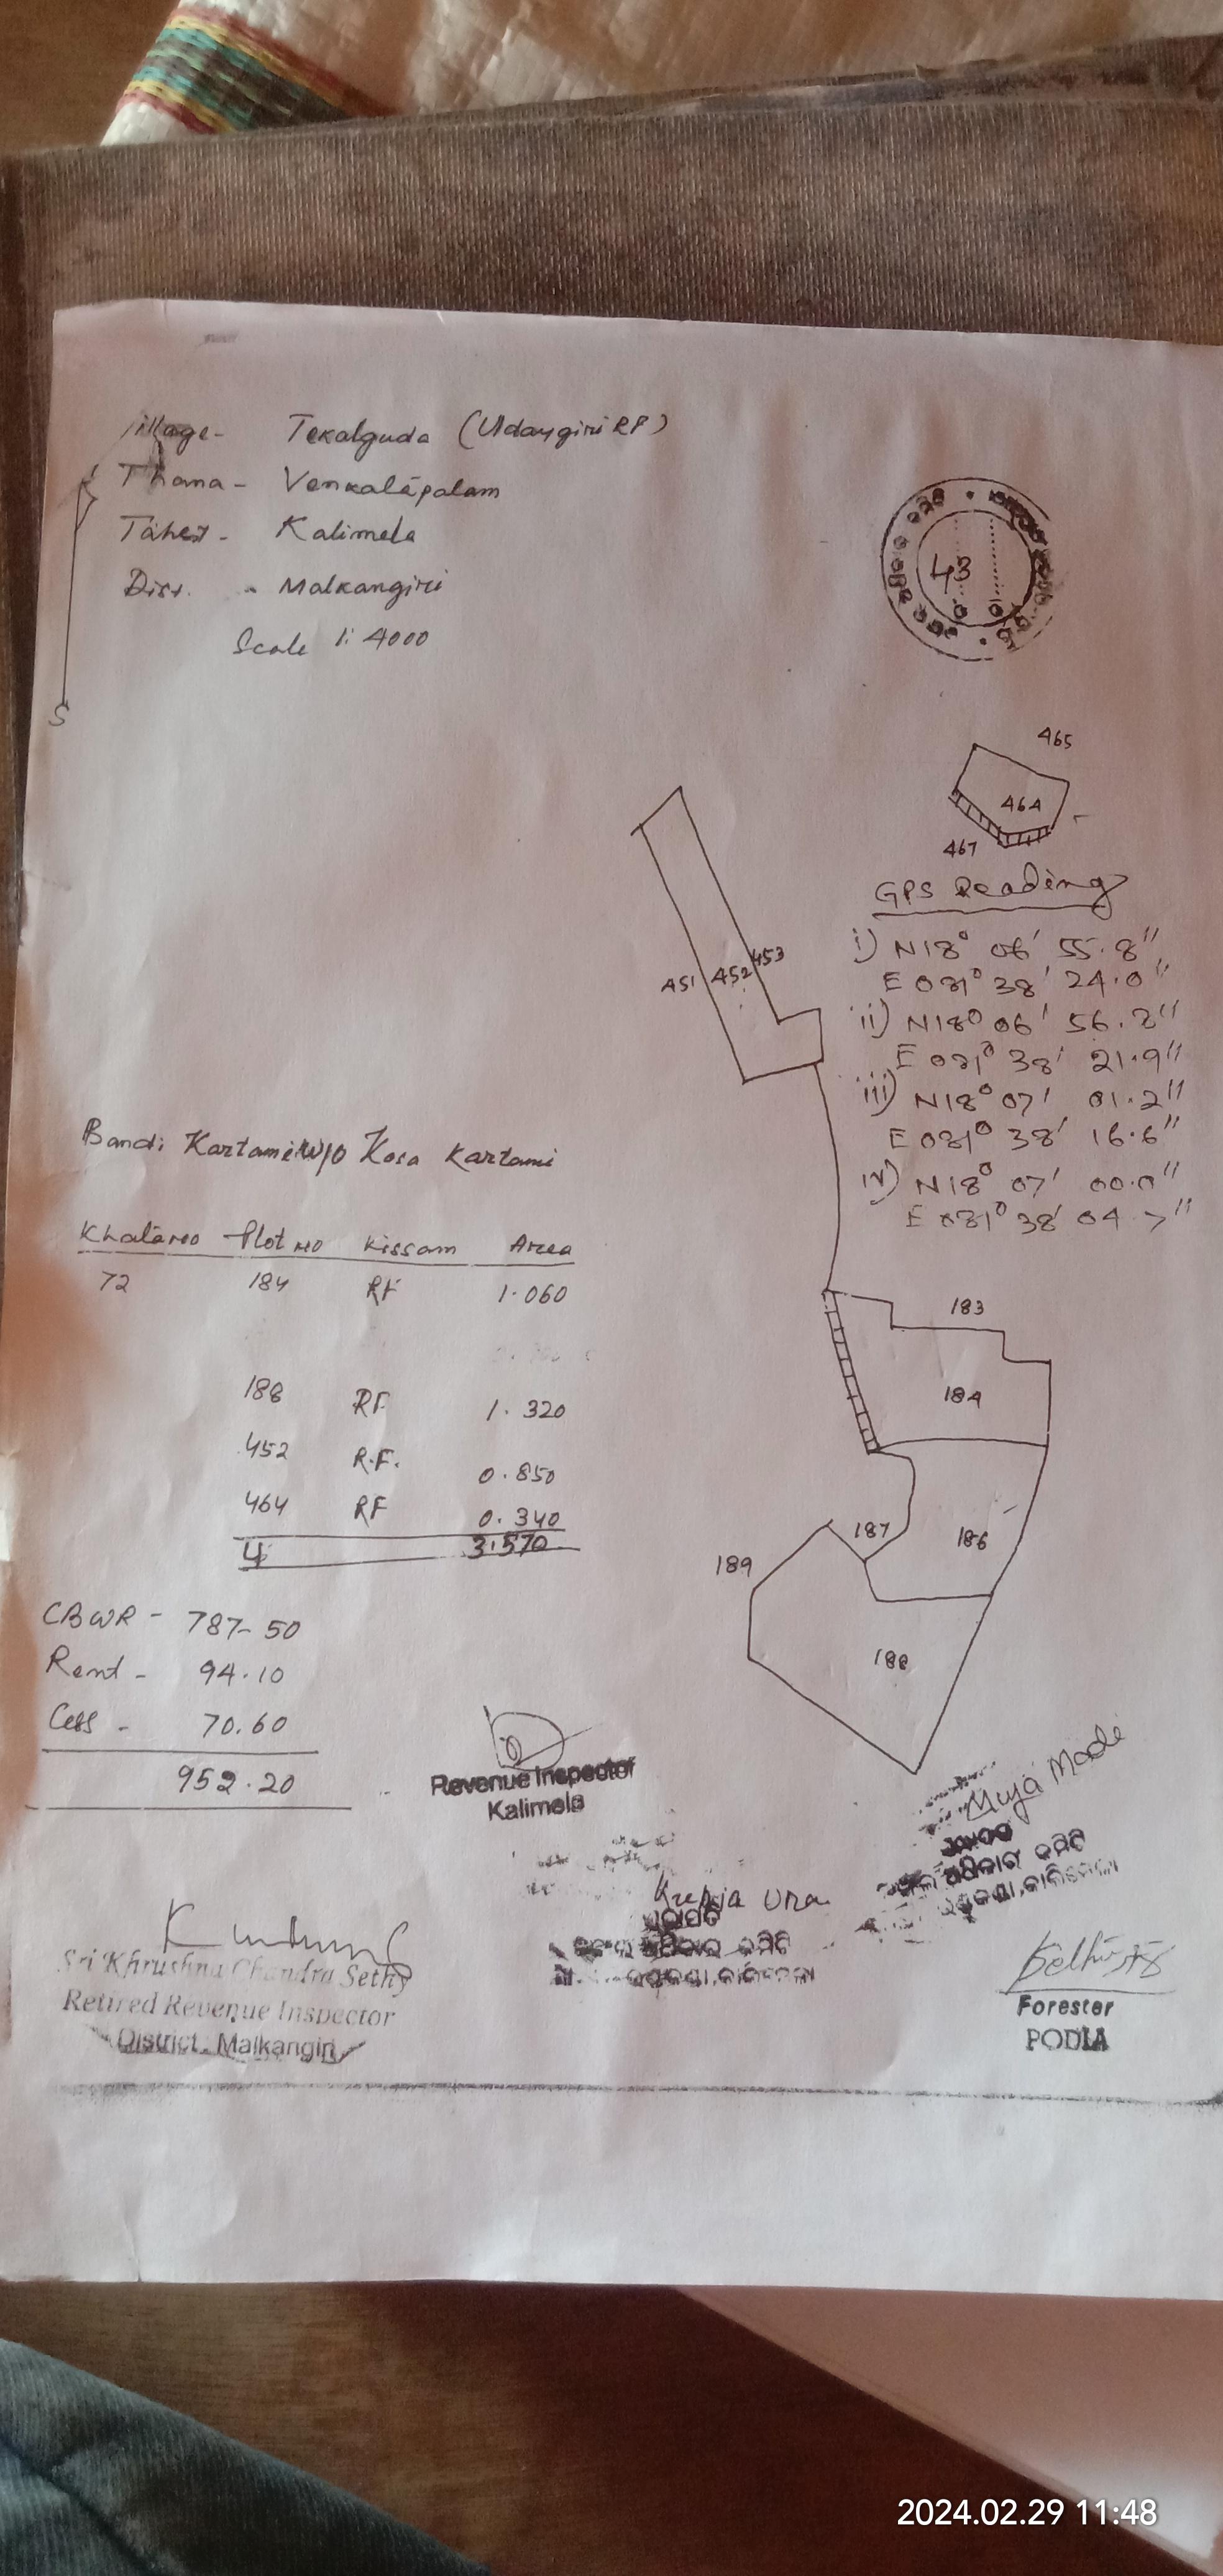 Village- Tekalguda (Udaygiri RF)
Thana - Venkatapalam
Tahsil - Kalimela
Dist. - Malkangiri
Scale 1: 4000
S
43
465
464
467
GPS Reading
i) N18° 06' 55.8"
E 081° 38' 24.0"
ii) N18° 06' 56.2"
E 081° 38' 21.9"
iii) N18° 07' 01.2"
E 081° 38' 16.6"
iv) N18° 07' 00.0"
E 081° 38' 04.7"
451 452 453
Bandi Kartami W/O Kosa Kartami
Khata no Plot no Kissam Area
72 184 RF 1.060
188 RF 1.320
452 R.F. 0.850
464 RF 0.340
4 3.570
183
184
187 186
189
188
CBWR - 787-50
Rent - 94.10
Cess - 70.60
952.20
Revenue Inspector
Kalimela
Muja Madi
କମିଟି
Sri Khrushna Chandra Sethy
Retired Revenue Inspector
District. Malkangiri
କମିଟି
Forester
PODIA
2024.02.29 11:48